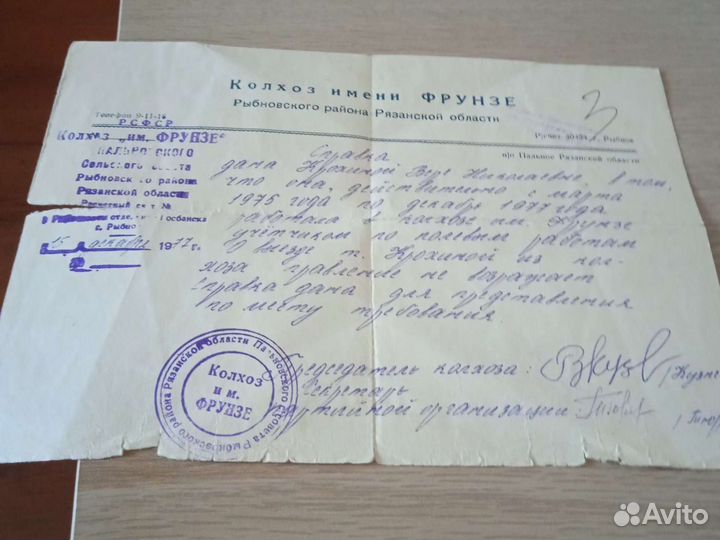 Колхоз имени ФРУНЗЕ
Рыбновского района Рязанской области
Телефон 9-11-18
РСФСР
Колхоз „им. ФРУНЗЕ“
ПАЛЬНОВСКОГО
Сельского совета
Рыбновского района
Рязанской области
Расчетный счет №
в отделении Госбанка
г. Рыбное
15 декабря 1977 г.
3
п/о Пальное Рязанской области
Справка
дана Крохиной Вере Николаевне в том,
что она, действительно с марта
1975 года по декабрь 1977 года
работала в колхозе им. Фрунзе
учётчиком по полевым работам
О выезде т. Крохиной из кол-
хоза правление не возражает
Справка дана для представления
по месту требования.
Председатель колхоза:
Секретарь
партийной организации
Колхоз
им.
ФРУНЗЕ
Пальновского с/совета Рыбновского района Рязанской области
Avito